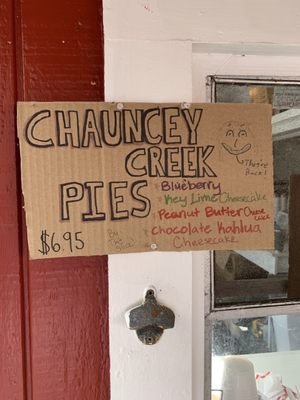 CHAUNCEY
CREEK
PIES
They're
Back!
Blueberry
Key Lime Cheesecake
Peanut Butter Cheese
cake
chocolate Kahlua
Cheesecake
By
the
$6.95